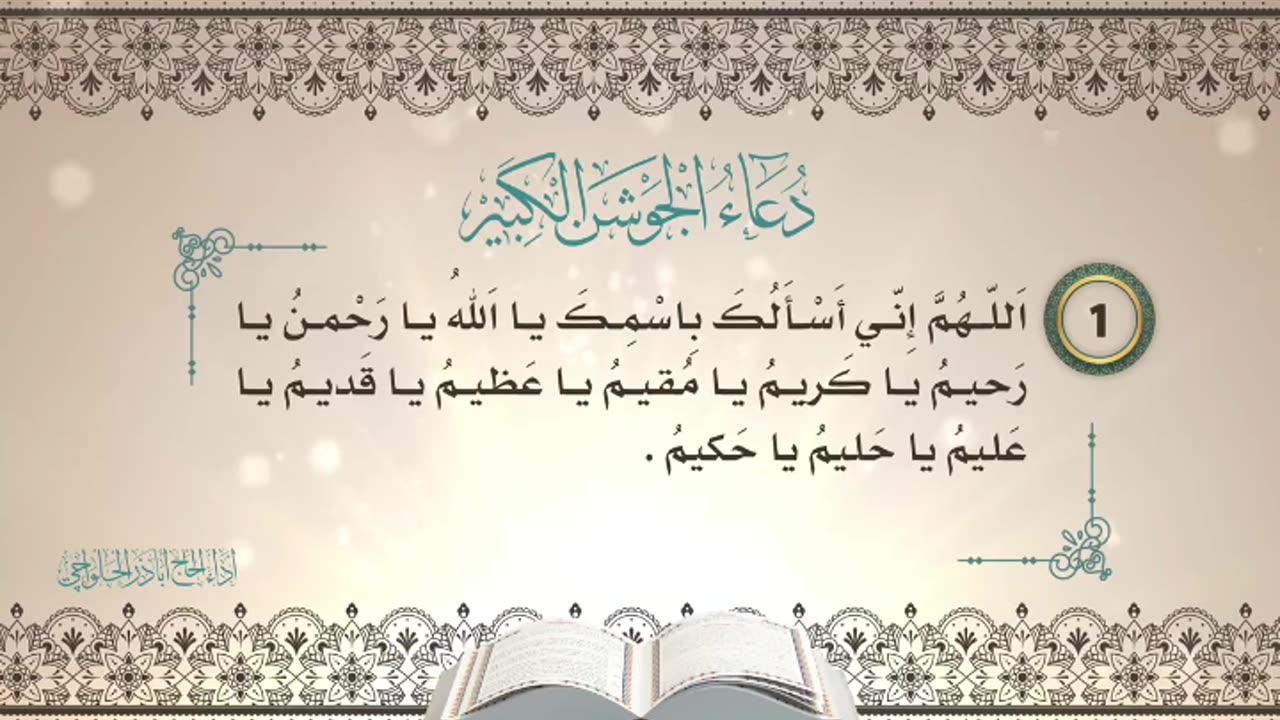 دُعَاءُ الْجَوْشَنِ الْكَبِيْرِ
1
اَللّـهُمَّ إِنّـي أَسْـأَلُكَ بِاسْمِـكَ يـا اَللهُ يـا رَحْمـنُ يـا
رَحيـمُ يـا كَريـمُ يـا مُقيـمُ يـا عَظيـمُ يـا قَديـمُ يـا
عَليمُ يا حَليمُ يا حَكيمُ .
إداء الحاج أباذر الحلواجي